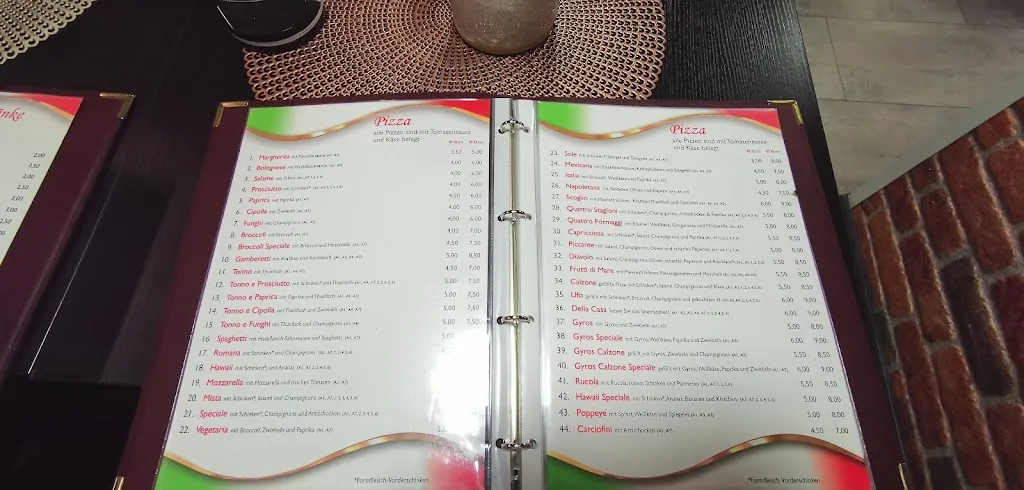 änke
2.00
3,50
2,00
2,50
3,00
3,00
2,50
Pizza
alle Pizzen sind mit Tomatensauce
und Käse belegt
1. Margherita mit Tomatensauce (A1, A7) 3,50 5,00
2. Bolognese mit Hackfleischsauce 4,00 6,00
3. Salame mit Salami 4,00 6,00
4. Prosciutto mit Schinken* 4,00 6,00
5. Paprica mit Paprika (A1, A7) 4,00 6,00
6. Cipolla mit Zwiebeln (A1, A7) 4,00 6,00
7. Funghi mit Champignons (A1, A7) 4,00 6,00
8. Broccoli mit Broccoli (A1, A7) 4,00 7,00
9. Broccoli Speciale mit Broccoli und Mozzarella (A1, A7) 4,50 7,50
10. Gamberetti mit Krabben und Knoblauch 5,00 8,50
11. Tonno mit Thunfisch 4,50 7,00
12. Tonno e Prosciutto mit Schinken* und Thunfisch 5,00 7,50
13. Tonno e Paprica mit Paprika und Thunfisch 5,00 7,50
14. Tonno e Cipolla mit Thunfisch und Zwiebeln 5,00 7,50
15. Tonno e Funghi mit Thunfisch und Champignons 5,00 7,50
16. Spaghetti mit Hackfleisch-Sahnesauce und Spaghetti 5,00
17. Romana mit Schinken* und Champignons
18. Hawaii mit Schinken* und Ananas
19. Mozzarella mit Mozzarella und frischen Tomaten (A1, A7)
20. Mista mit Schinken*, Salami und Champignons
21. Speciale mit Schinken*, Champignons und Artischocken
22. Vegetaria mit Broccoli, Zwiebeln und Paprika (A1, A7)
*Formfleisch-Vorderschinken
Pizza
alle Pizzen sind mit Tomatensauce
und Käse belegt
23. Sole mit Schinken*, Spinat und Spiegelei 5,00 8,00
24. Mexicana mit Hackfleischsauce, Kidneybohnen und Spiegelei 4,50 7,50
25. Italia mit Broccoli, Weißkäse und Paprika (A1, A7) 5,00 8,00
26. Napoletana mit Sardellen, Oliven und Kapern 4,50 7,50
27. Scoglio mit Meeresfrüchten, Krabben, Thunfisch und Garnelen 6,00 9,00
28. Quattro Stagioni mit Schinken*, Champignons, Artischocken & Paprika 5,00 8,00
29. Quattro Formaggi mit Edamer, Weißkäse, Gorgonzola und Mozzarella 5,00 8,00
30. Capricciosa mit Schinken*, Salami, Champignons und Paprika 5,00 8,00
31. Piccante mit Salami, Champignons, Oliven und scharfen Peperoni 5,00 8,00
32. Diavolo mit Salami, Champignons, Oliven, scharfen Peperoni und Knoblauch 5,00 8,00
33. Frutti di Mare mit Meeresfrüchten 5,50 8,50
34. Calzone gefüllte Pizza mit Schinken*, Salami, Champignons und Käse 5,50 8,50
35. Ufo gefüllt mit Schinken*, Broccoli, Champignons und gekochtem Ei 6,00 9,00
36. Della Casa lassen Sie sich überraschen! 6,00 9,00
37. Gyros mit Gyros und Zwiebeln 5,00 8,00
38. Gyros Speciale mit Gyros, Weißkäse, Paprika und Zwiebeln (A1, A7) 6,00 9,00
39. Gyros Calzone gefüllt mit Gyros, Zwiebeln und Champignons (A1, A7) 5,50 8,50
40. Gyros Calzone Speciale gefüllt mit Gyros, Weißkäse, Paprika und Zwiebeln (A1, A7) 6,00 9,00
41. Rucola mit Rucola, rohem Schinken und Parmesan 5,50 8,50
42. Hawaii Speciale mit Schinken*, Ananas, Bananen und Kirschen 5,00 8,00
43. Poppeye mit Spinat, Weißkäse und Spiegelei 5,00 8,00
44. Carciofini mit Artischocken (A1, A7) 4,50 7,00
*Formfleisch-Vorderschinken